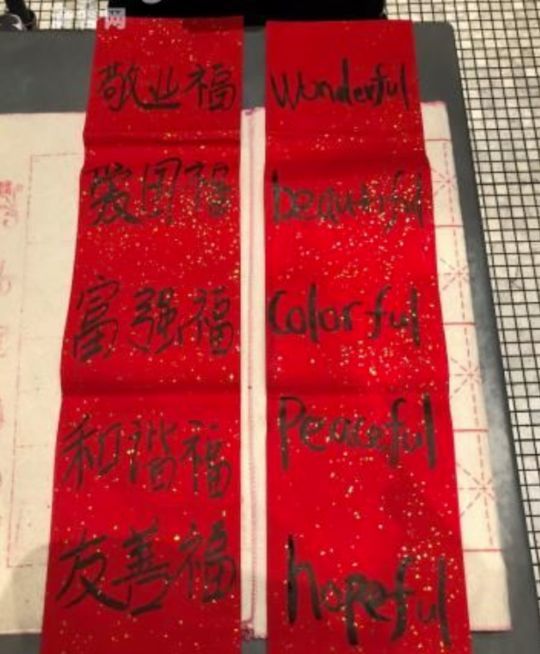 敬业福
爱国福
富强福
和谐福
友善福
Wonderful
beautiful
Colorful
Peaceful
hopeful
网